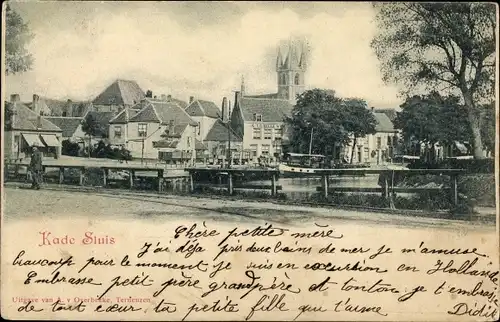 Kade Sluis
Chère petite mère
J'ai déja pris deux bains de mer je m'amuse
beaucoup pour le moment je suis en excursion en Hollande
Embrasse petit père grandpère et tonton, je t'embrasse
de tout cœur, ta petite fille qui t'aime
Didie
Uitgave van A. v Overbeeke, Terneuzen.